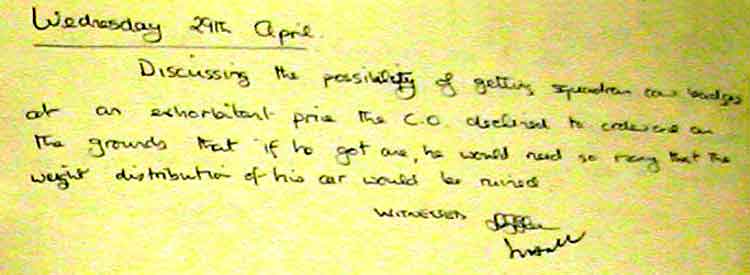 Wednesday 29th April.
Discussing the possibility of getting squadron car badges
at an exhorbitant price the C.O. declined to order one on
the grounds that if he got one, he would need so many that the
weight distribution of his car would be ruined.
WITNESSED